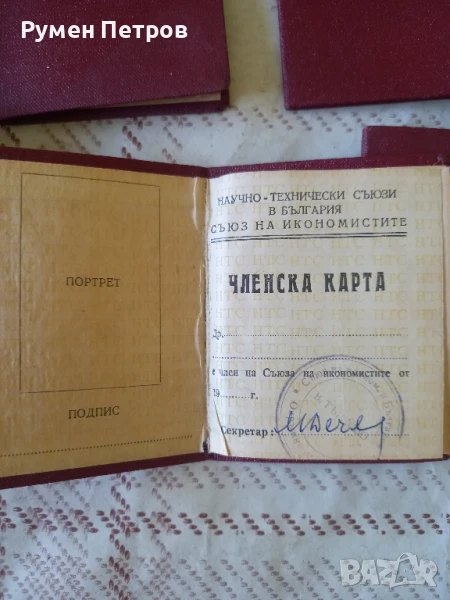 Румен Петров
НАУЧНО-ТЕХНИЧЕСКИ СЪЮЗИ
В БЪЛГАРИЯ
СЪЮЗ НА ИКОНОМИСТИТЕ
ЧЛЕНСКА КАРТА
Др.
е член на Съюза на икономистите от
19 г.
Секретар:
ПОРТРЕТ
ПОДПИС
НТС НТС НТС НТС
BAZAR